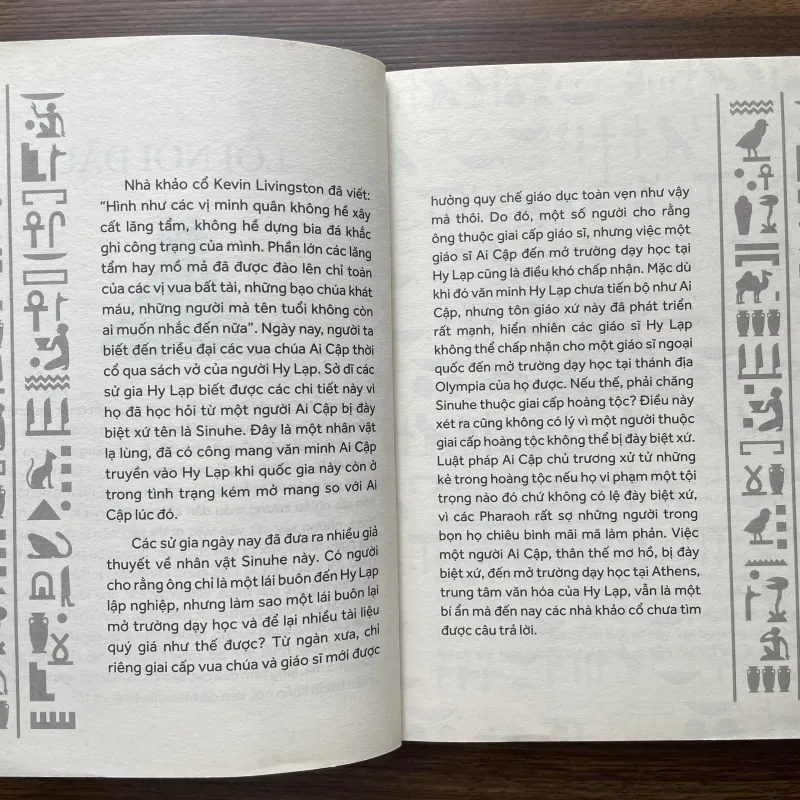 Nhà khảo cổ Kevin Livingston đã viết:
“Hình như các vị minh quân không hề xây
cất lăng tẩm, không hề dựng bia đá khắc
ghi công trạng của mình. Phần lớn các lăng
tẩm hay mồ mả đã được đào lên chỉ toàn
của các vị vua bất tài, những bạo chúa khát
máu, những người mà tên tuổi không còn
ai muốn nhắc đến nữa”. Ngày nay, người ta
biết đến triều đại các vua chúa Ai Cập thời
cổ qua sách vở của người Hy Lạp. Sở dĩ các
sử gia Hy Lạp biết được các chi tiết này vì
họ đã học hỏi từ một người Ai Cập bị đày
biệt xứ tên là Sinuhe. Đây là một nhân vật
lạ lùng, đã có công mang văn minh Ai Cập
truyền vào Hy Lạp khi quốc gia này còn ở
trong tình trạng kém mở mang so với Ai
Cập lúc đó.
Các sử gia ngày nay đã đưa ra nhiều giả
thuyết về nhân vật Sinuhe này. Có người
cho rằng ông chỉ là một lái buôn đến Hy Lạp
lập nghiệp, nhưng làm sao một lái buôn lại
mở trường dạy học và để lại nhiều tài liệu
quý giá như thế được? Từ ngàn xưa, chỉ
riêng giai cấp vua chúa và giáo sĩ mới được
hưởng quy chế giáo dục toàn vẹn như vậy
mà thôi. Do đó, một số người cho rằng
ông thuộc giai cấp giáo sĩ, nhưng việc một
giáo sĩ Ai Cập đến mở trường dạy học tại
Hy Lạp cũng là điều khó chấp nhận. Mặc dù
khi đó văn minh Hy Lạp chưa tiến bộ như Ai
Cập, nhưng tôn giáo xứ này đã phát triển
rất mạnh, hiển nhiên các giáo sĩ Hy Lạp
không thể chấp nhận cho một giáo sĩ ngoại
quốc đến mở trường dạy học tại thánh địa
Olympia của họ được. Nếu thế, phải chăng
Sinuhe thuộc giai cấp hoàng tộc? Điều này
xét ra cũng không có lý vì một người thuộc
giai cấp hoàng tộc không thể bị đày biệt xứ.
Luật pháp Ai Cập chủ trương xử tử những
kẻ trong hoàng tộc nếu họ vi phạm một tội
trọng nào đó chứ không có lệ đày biệt xứ,
vì các Pharaoh rất sợ những người trong
bọn họ chiêu binh mãi mã làm phản. Việc
một người Ai Cập, thân thế mơ hồ, bị đày
biệt xứ, đến mở trường dạy học tại Athens,
trung tâm văn hóa của Hy Lạp, vẫn là một
bí ẩn mà đến nay các nhà khảo cổ chưa tìm
được câu trả lời.